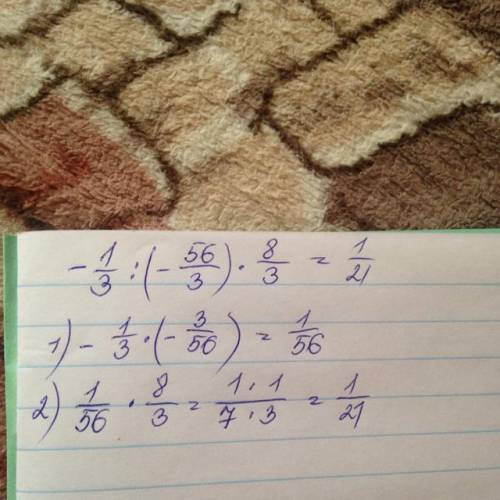 -1/3 : (-56/3) · 8/3 = 1/21
1) -1/3 · (-3/56) = 1/56
2) 1/56 · 8/3 = 1·1/7·3 = 1/21